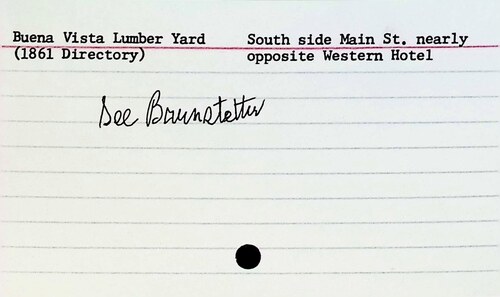 Buena Vista Lumber Yard South side Main St. nearly
(1861 Directory) opposite Western Hotel
See Baumstetter